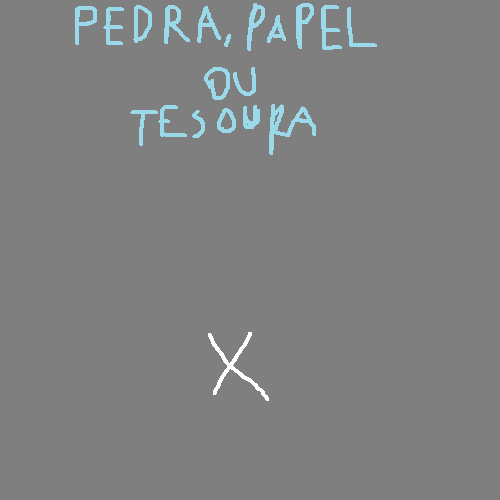 PEDRA, PAPEL
OU
TESOURA
X